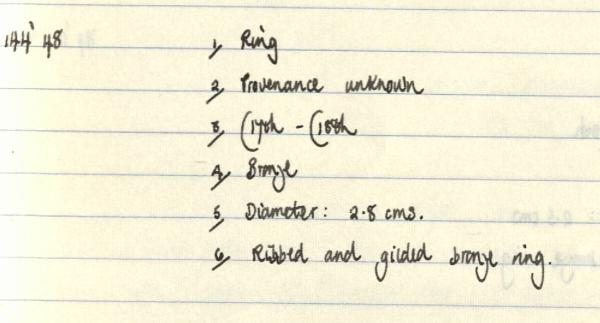 144'48 1, Ring
2, Provenance unknown
3, C17th - C18th
4, Bronze
5, Diameter: 2.8 cms.
6, Ribbed and gilded bronze ring.